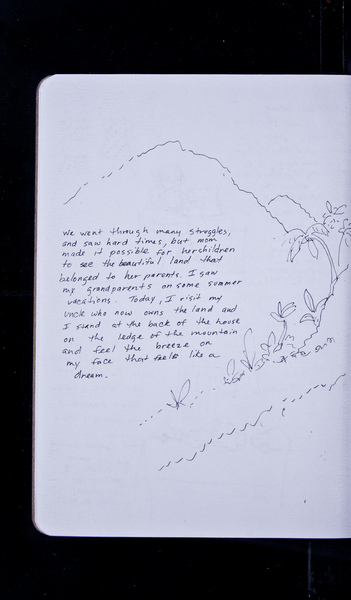 We went through many struggles,
and saw hard times, but mom
made it possible for her children
to see the beautiful land that
belonged to her parents. I saw
my grandparents on some summer
vacations. Today, I visit my
Uncle who now owns the land and
I stand at the back of the house
on the ledge of the mountain
and feel the breeze on
my face that feels like a
dream.